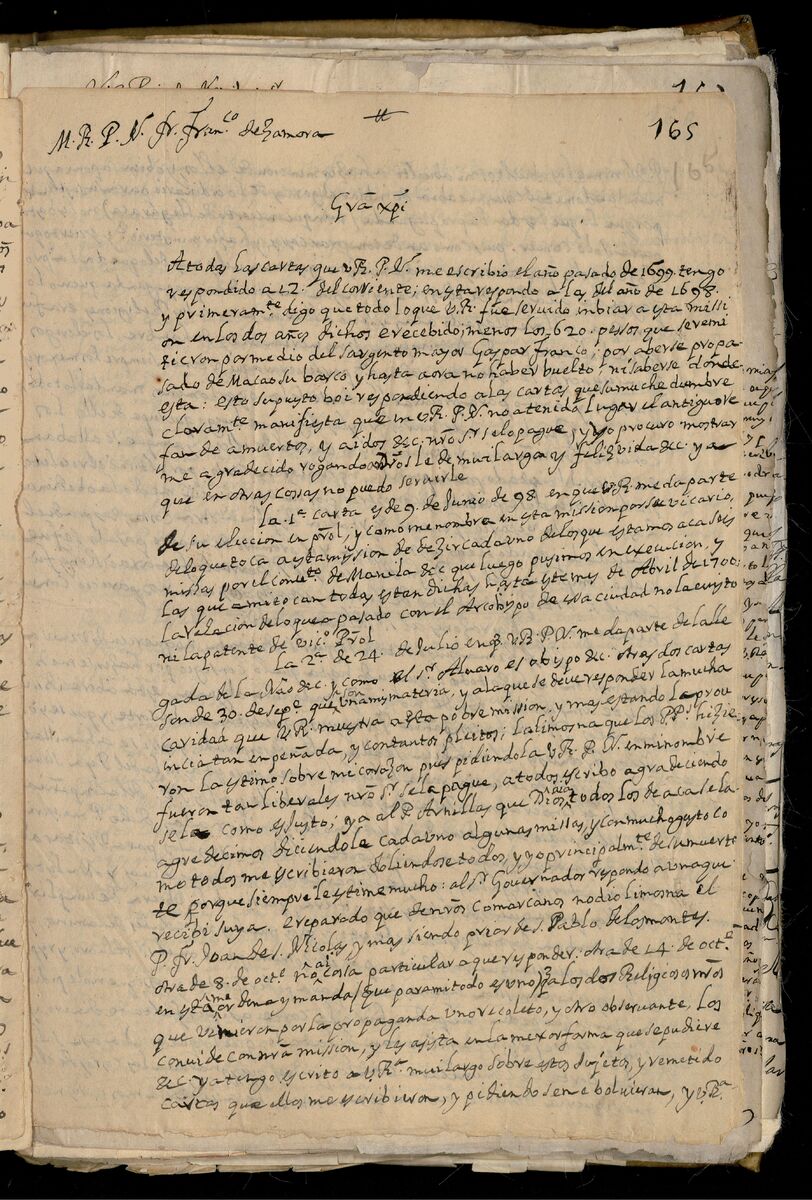 M. R. P. N. Fr. Fran.co de Zamora
165
Gr̃a xp̃i
A todas las cartas que V. R. P. N. me escribio el año pasado de 1699. tengo
respondido a 12. del corriente; en esta respondo a las del año de 1698.
y primeram.te digo que todo lo que V. R. fue seruido imbiar a esta missi
on en los dos años dichos e recebido; menos los 620. pessos que se remi
tieron por medio del sargento mayor Gaspar Franco; por aberse propa
sado de Macao su barco, y hasta aora no haber buelto ni saberse donde
esta: esto supuesto boi respondiendo a las cartas que su muchedumbre
claram.te manifiesta que in V. R. P. N. no a tenido lugar el antiguo re
fan de a muertos, y a idos &c. nr̃o Sr. se lo pague, y yo procuro mostrar
me agradecido rogando a Dios le de mui larga y feliz vida &c. ya
que en otras cossas no puedo seruirle
la 1.a carta es de 9. de Junio de 98. en que V. R. me da parte
de su eleccion en pr̃ol, y como me nombra en esta mission por su vicario,
de lo que toca a esta mission de dezir cada uno de los que estamos aca seis
missas por il conv.to de Manila &c que luego pusimos en execucion, y
las que a mi tocan todas estan dichas hasta este mes de Abril de 1700:
la relacion de lo que a pasado con el Arcobispo de essa ciudad no la e visto
ni la patente de vic.o Pr̃ol
la 2.a de 24. de Julio en q. V. R. P. N. me da parte de la lle
gada de la Nao &c. y como el Sr. Alvaro es obispo &c. otras dos cartas
son de 30. de sep.e que son una mis materia, y a la que se deue responder la mucha
caridad que V. R. muestra a esta pobre mission, y mas estando la prou
incia tan enpeñada, y con tantos pleitos; la limosna que los P.P. hizie
ron la estimo sobre mi corazon pues pidiendola V. R. P. N. en mi nombre
fueron tan liberales nr̃o Sr. se la pague, a todos escribo agradeciendo
sela como es justo; ya al P. Arnillas que Dios aia todos los de aca se la
agredecimos diciendole cada uno algunas missas, y con mucho gusto co
mo todos me escribieron doliendose todos, y yo principalm.te de su muerte
te porque siempre le estime mucho: al Sr. Gouernador respondo a una que
recibi suya. e reparado que de nr̃os comarcanos no dio limosna el
P. Fr. Joan de S. Nicolas, y mas siendo prior de S. Pablo de los montes.
otra de 8. de oct.e no ai cosa particular a que responder: otra de 14. de oct.e
en esta me ordena y manda (que para mi todo es uno) q a los dos Religiosos nr̃os
que vinieron por la propaganda uno recoleto, y otro observante, los
convide con nr̃a mission, y les asista en la mexor forma que se pudiere
&c. ya tengo escrito a V. R.a mui largo sobre estos sujetos, y remetido
cartas que ellos me escribieron, y pidiendosene bolvieran, y V. R.a